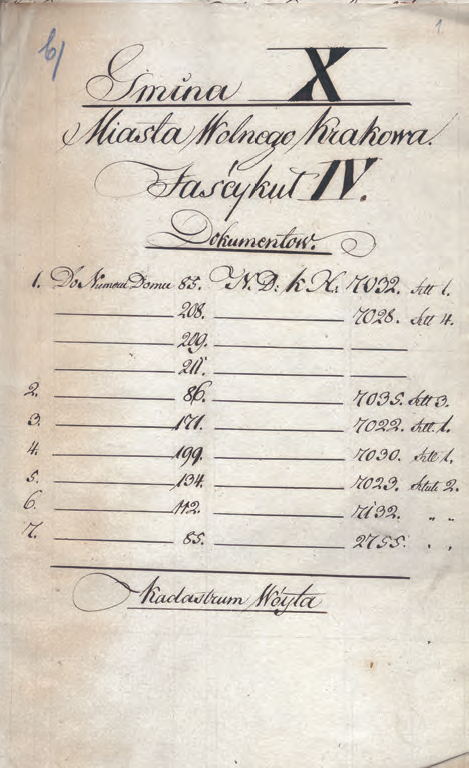 b/ 1
Gmina X
Miasta Wolnego Krakowa.
Faścykuł IV.
Dokumentow.
1. Do Numeru Domu 85. N. D: k H: 7032. Sztt 1.
208. 7028. Sztt 4.
209.
211.
2. 86. 7035. Sztt 3.
3. 171. 7022. Sztt. 1.
4. 199. 7030. Sztt 1.
5. 134. 7023. Sztuk 2.
6. 112. 7132. " "
7. 85. 2755. " "
Kadastrum Wóyta